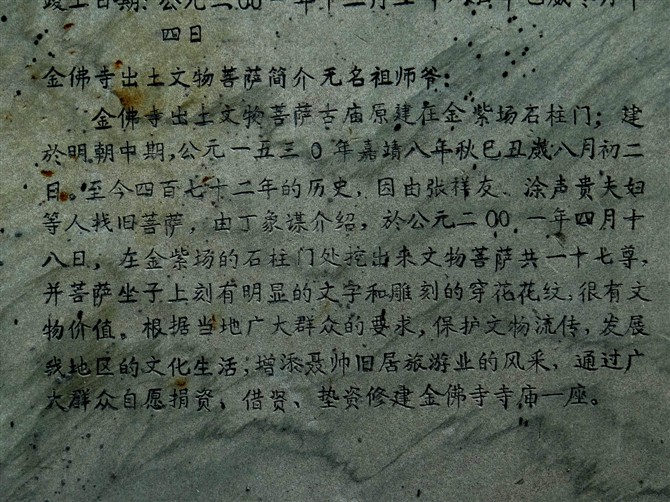 竣工日期：公元二00一年十二月
四日
金佛寺出土文物菩萨简介无名祖师爷：
金佛寺出土文物菩萨古庙原建在金紫场石柱门；建
於明朝中期，公元一五三0年嘉靖八年秋已丑歲八月初二
日。至今四百七十二年的历史，因由张祥友、涂声贵夫妇
等人找旧菩萨，由丁象谋介绍，於公元二00一年四月十
八日，在金紫场的石柱门处挖出来文物菩萨共一十七尊，
并菩萨坐子上刻有明显的文字和雕刻的穿花花纹，很有文
物价值。根据当地广大群众的要求，保护文物流传，发展
我地区的文化生活；增添聂帅旧居旅游业的风采，通过广
大群众自愿捐资、借贤、垫资修建金佛寺寺庙一座。